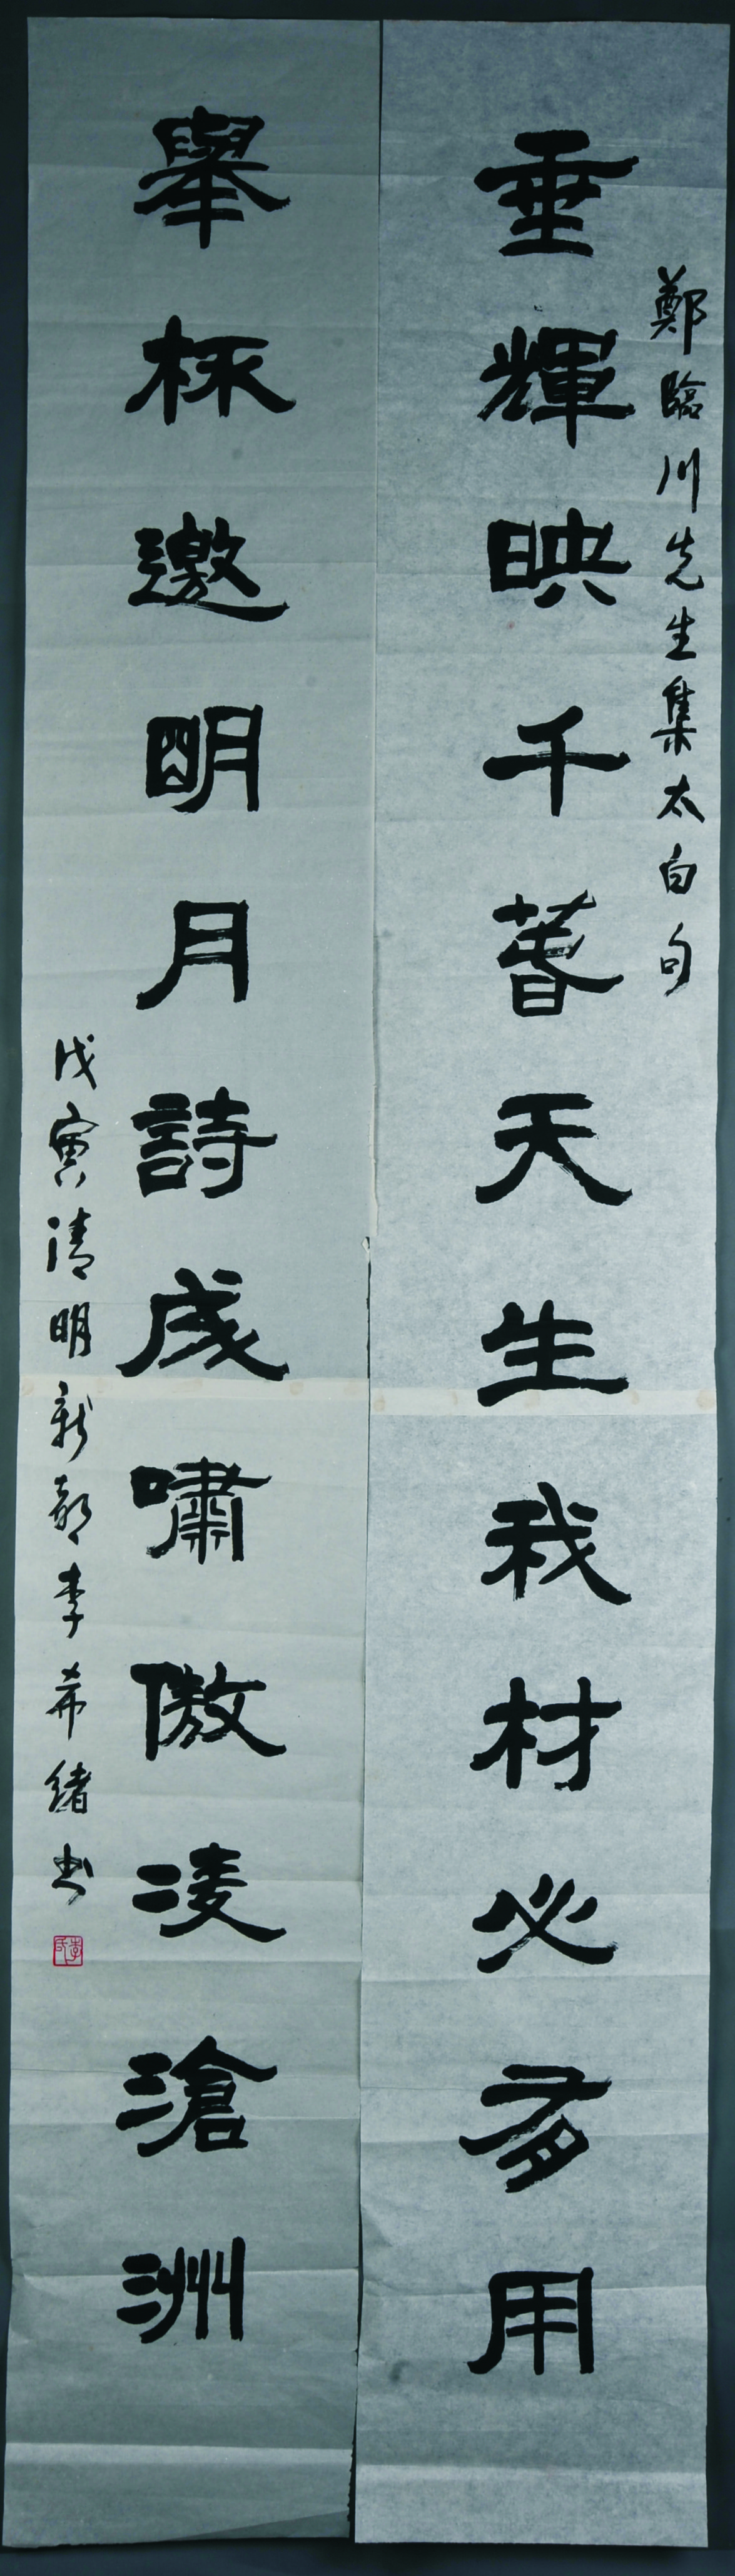 鄭臨川先生集太白句
垂輝映千春天生我材必有用
舉杯邀明月詩成嘯傲凌滄洲
戊寅清明新都李希緒书